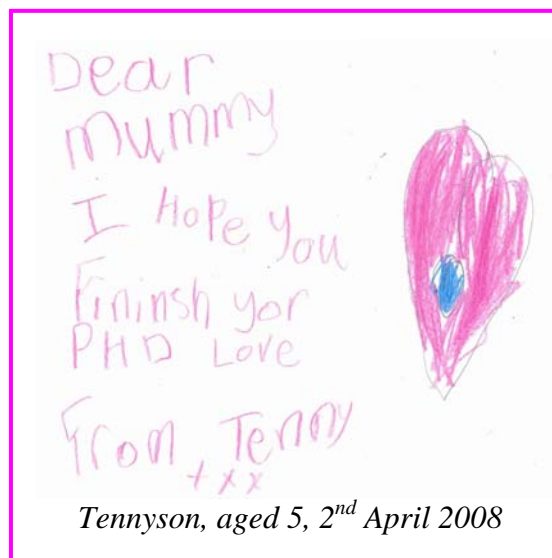 Dear
Mummy
I Hope You
Fininsh yor
PHD Love
From Tenny
+ x x
Tennyson, aged 5, 2nd April 2008